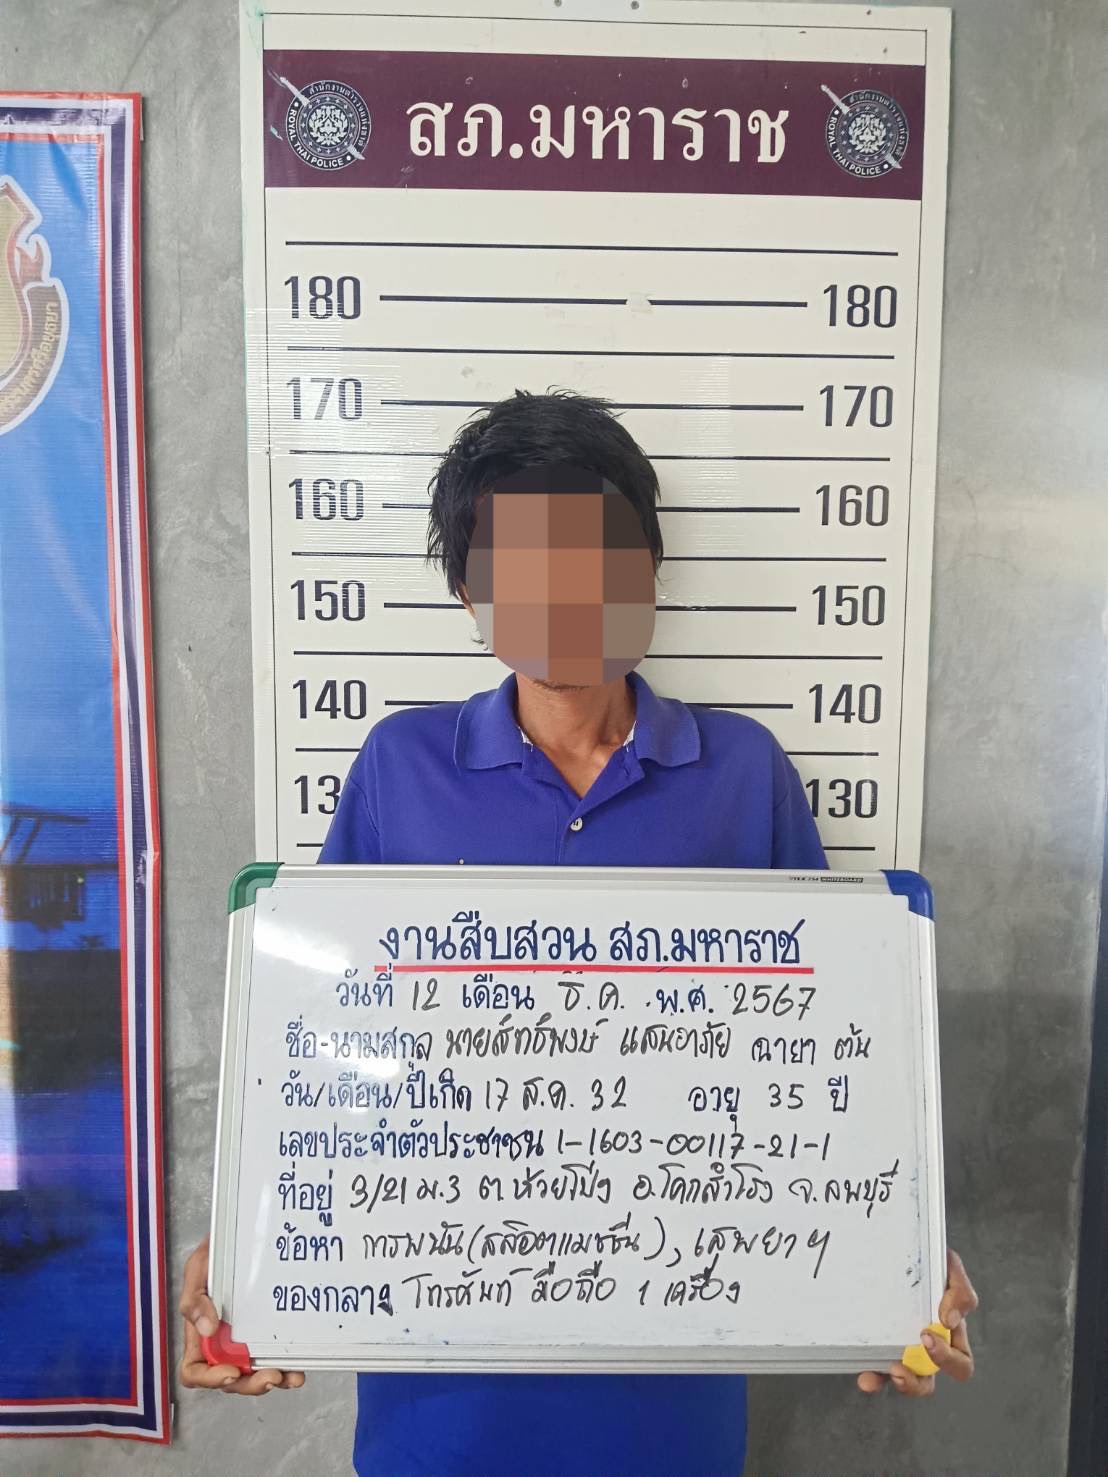 สภ.มหาราช
สำนักงานตำรวจแห่งชาติ
ROYAL THAI POLICE
สำนักงานตำรวจแห่งชาติ
ROYAL THAI POLICE
180 180
170 170
160 160
150 150
140 140
13 130
งานสืบสวน สภ.มหาราช
วันที่ 12 เดือน ธ.ค. พ.ศ. 2567
ชื่อ-นามสกุล นายสิทธิพงษ์ แสนอาภัย ฉายา ต้น
วัน/เดือน/ปีเกิด 17 ส.ค. 32 อายุ 35 ปี
เลขประจำตัวประชาชน 1-1603-00117-21-1
ที่อยู่ 3/21 ม.3 ต.ห้วยโป่ง อ.โคกสำโรง จ.ลพบุรี
ข้อหา การพนัน(สล๊อตแมชชีน), เสพยาฯ
ของกลาง โทรศัพท์ มือถือ 1 เครื่อง